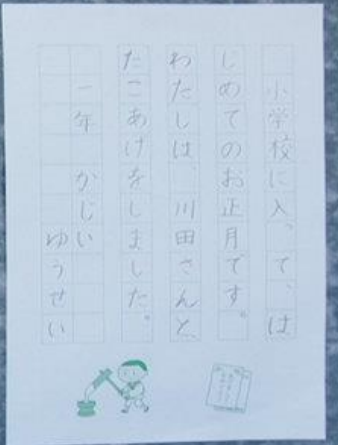 小学校に入って、は
じめてのお正月です。
わたしは、川田さんと、
たこあげをしました。
一年　かじい
ゆうせい